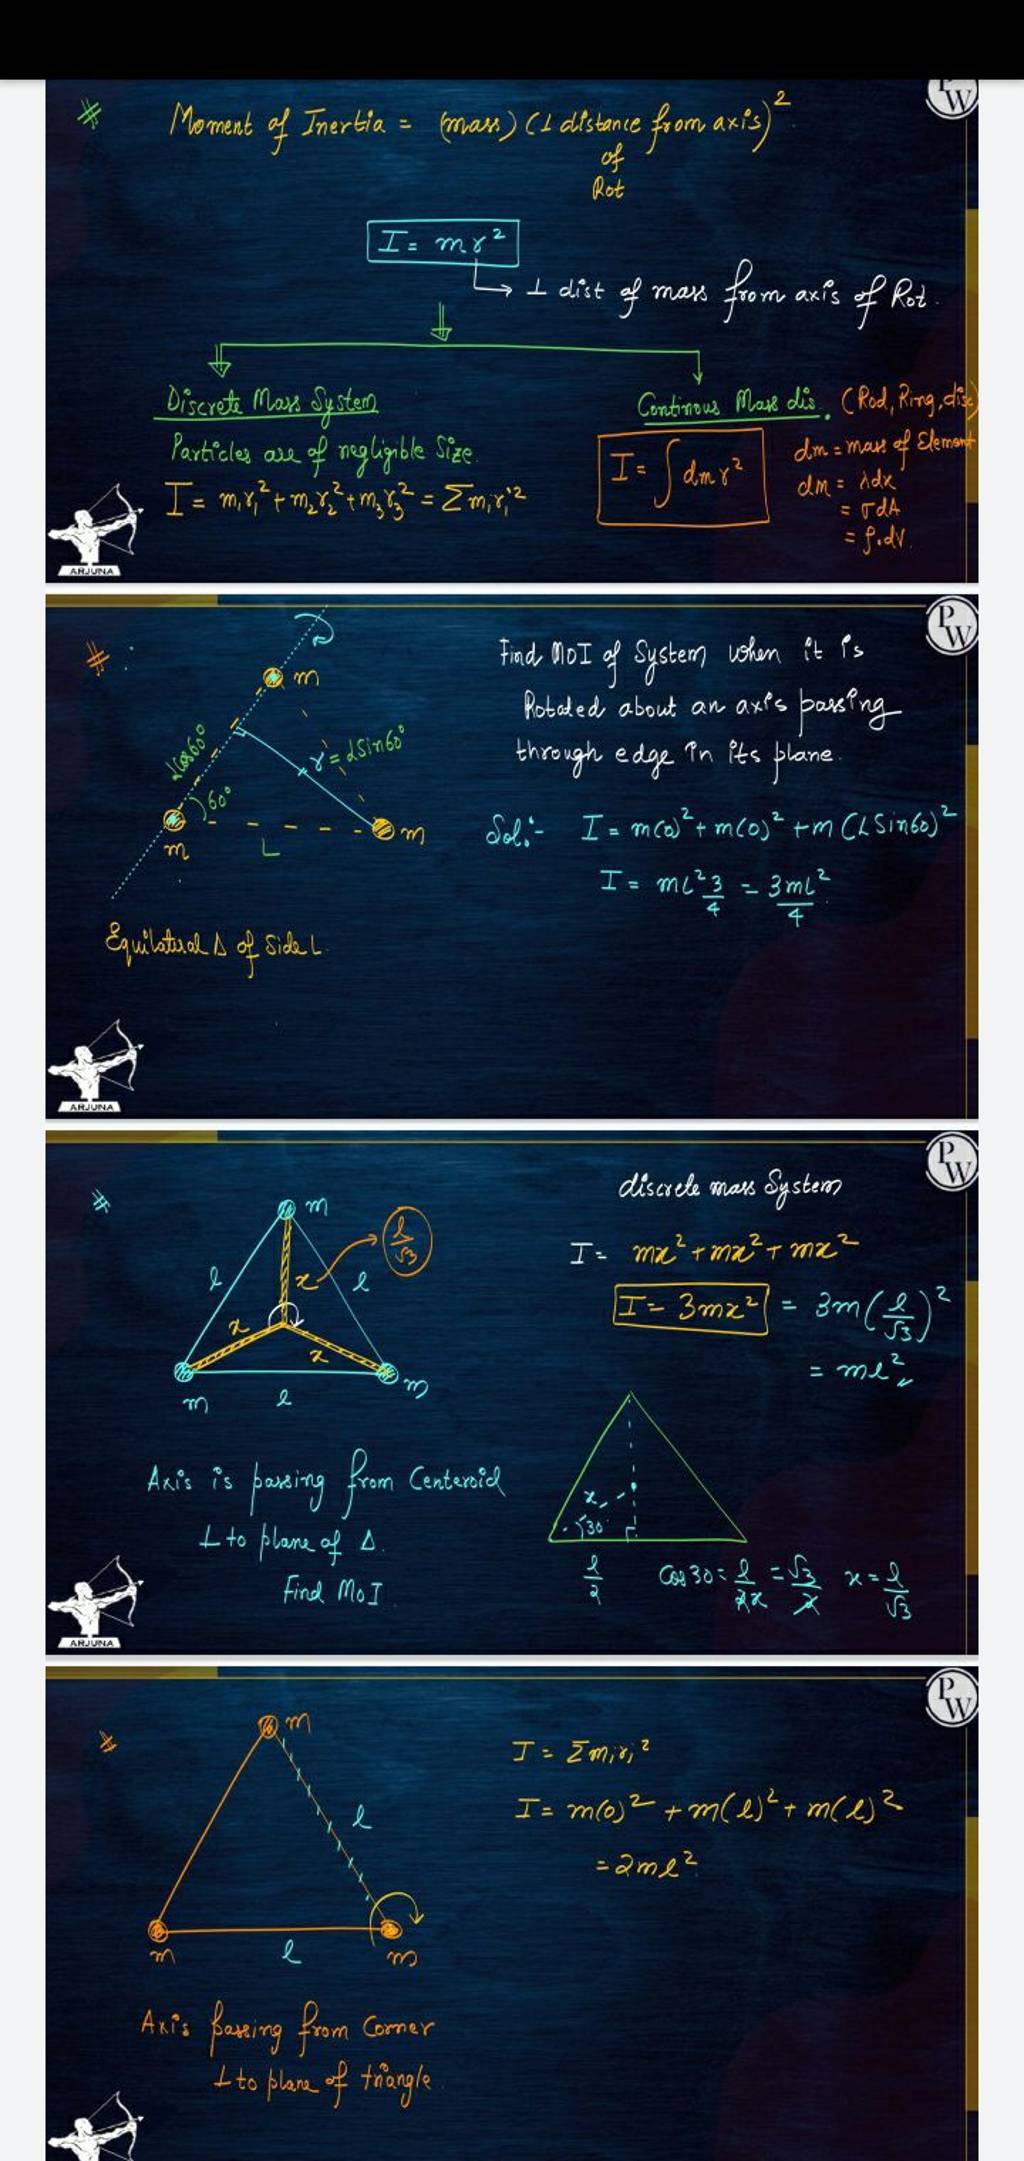 PW
# Moment of Inertia = (mass) (⊥ distance from axis)²
of
Rot
I = mr²
→ ⊥ dist of mass from axis of Rot.
Discrete Mass System
Particles are of negligible size.
I = m₁r₁² + m₂r₂² + m₃r₃² = Σmᵢrᵢ²
Continous Mass dis. (Rod, Ring, disc)
I = ∫dmr²
dm = mass of Element
dm = λdx
= σdA
= ρ.dV.
ARJUNA
PW
# :
m
Lcos60°
r = LSin60°
60°
m
L
m
Equilateral Δ of Side L.
Find MOI of System when it is
Rotated about an axis passing
through edge in its plane.
Sol:- I = m(0)² + m(0)² + m(LSin60)²
I = mL² 3/4 = 3mL²/4
ARJUNA
PW
#
m
l/√3
l
x
l
x
x
m
l
m
Axis is passing from Centeroid
⊥ to plane of Δ.
Find MOI
discrete mass System
I = mx² + mx² + mx²
I = 3mx² = 3m(l/√3)²
= ml²
x
30
l/2
Cos30 = l/2x = √3/2 x = l/√3
ARJUNA
PW
m
l
m
l
m
Axis passing from Corner
⊥ to plane of triangle
I = Σmᵢrᵢ²
I = m(0)² + m(l)² + m(l)²
= 2ml²